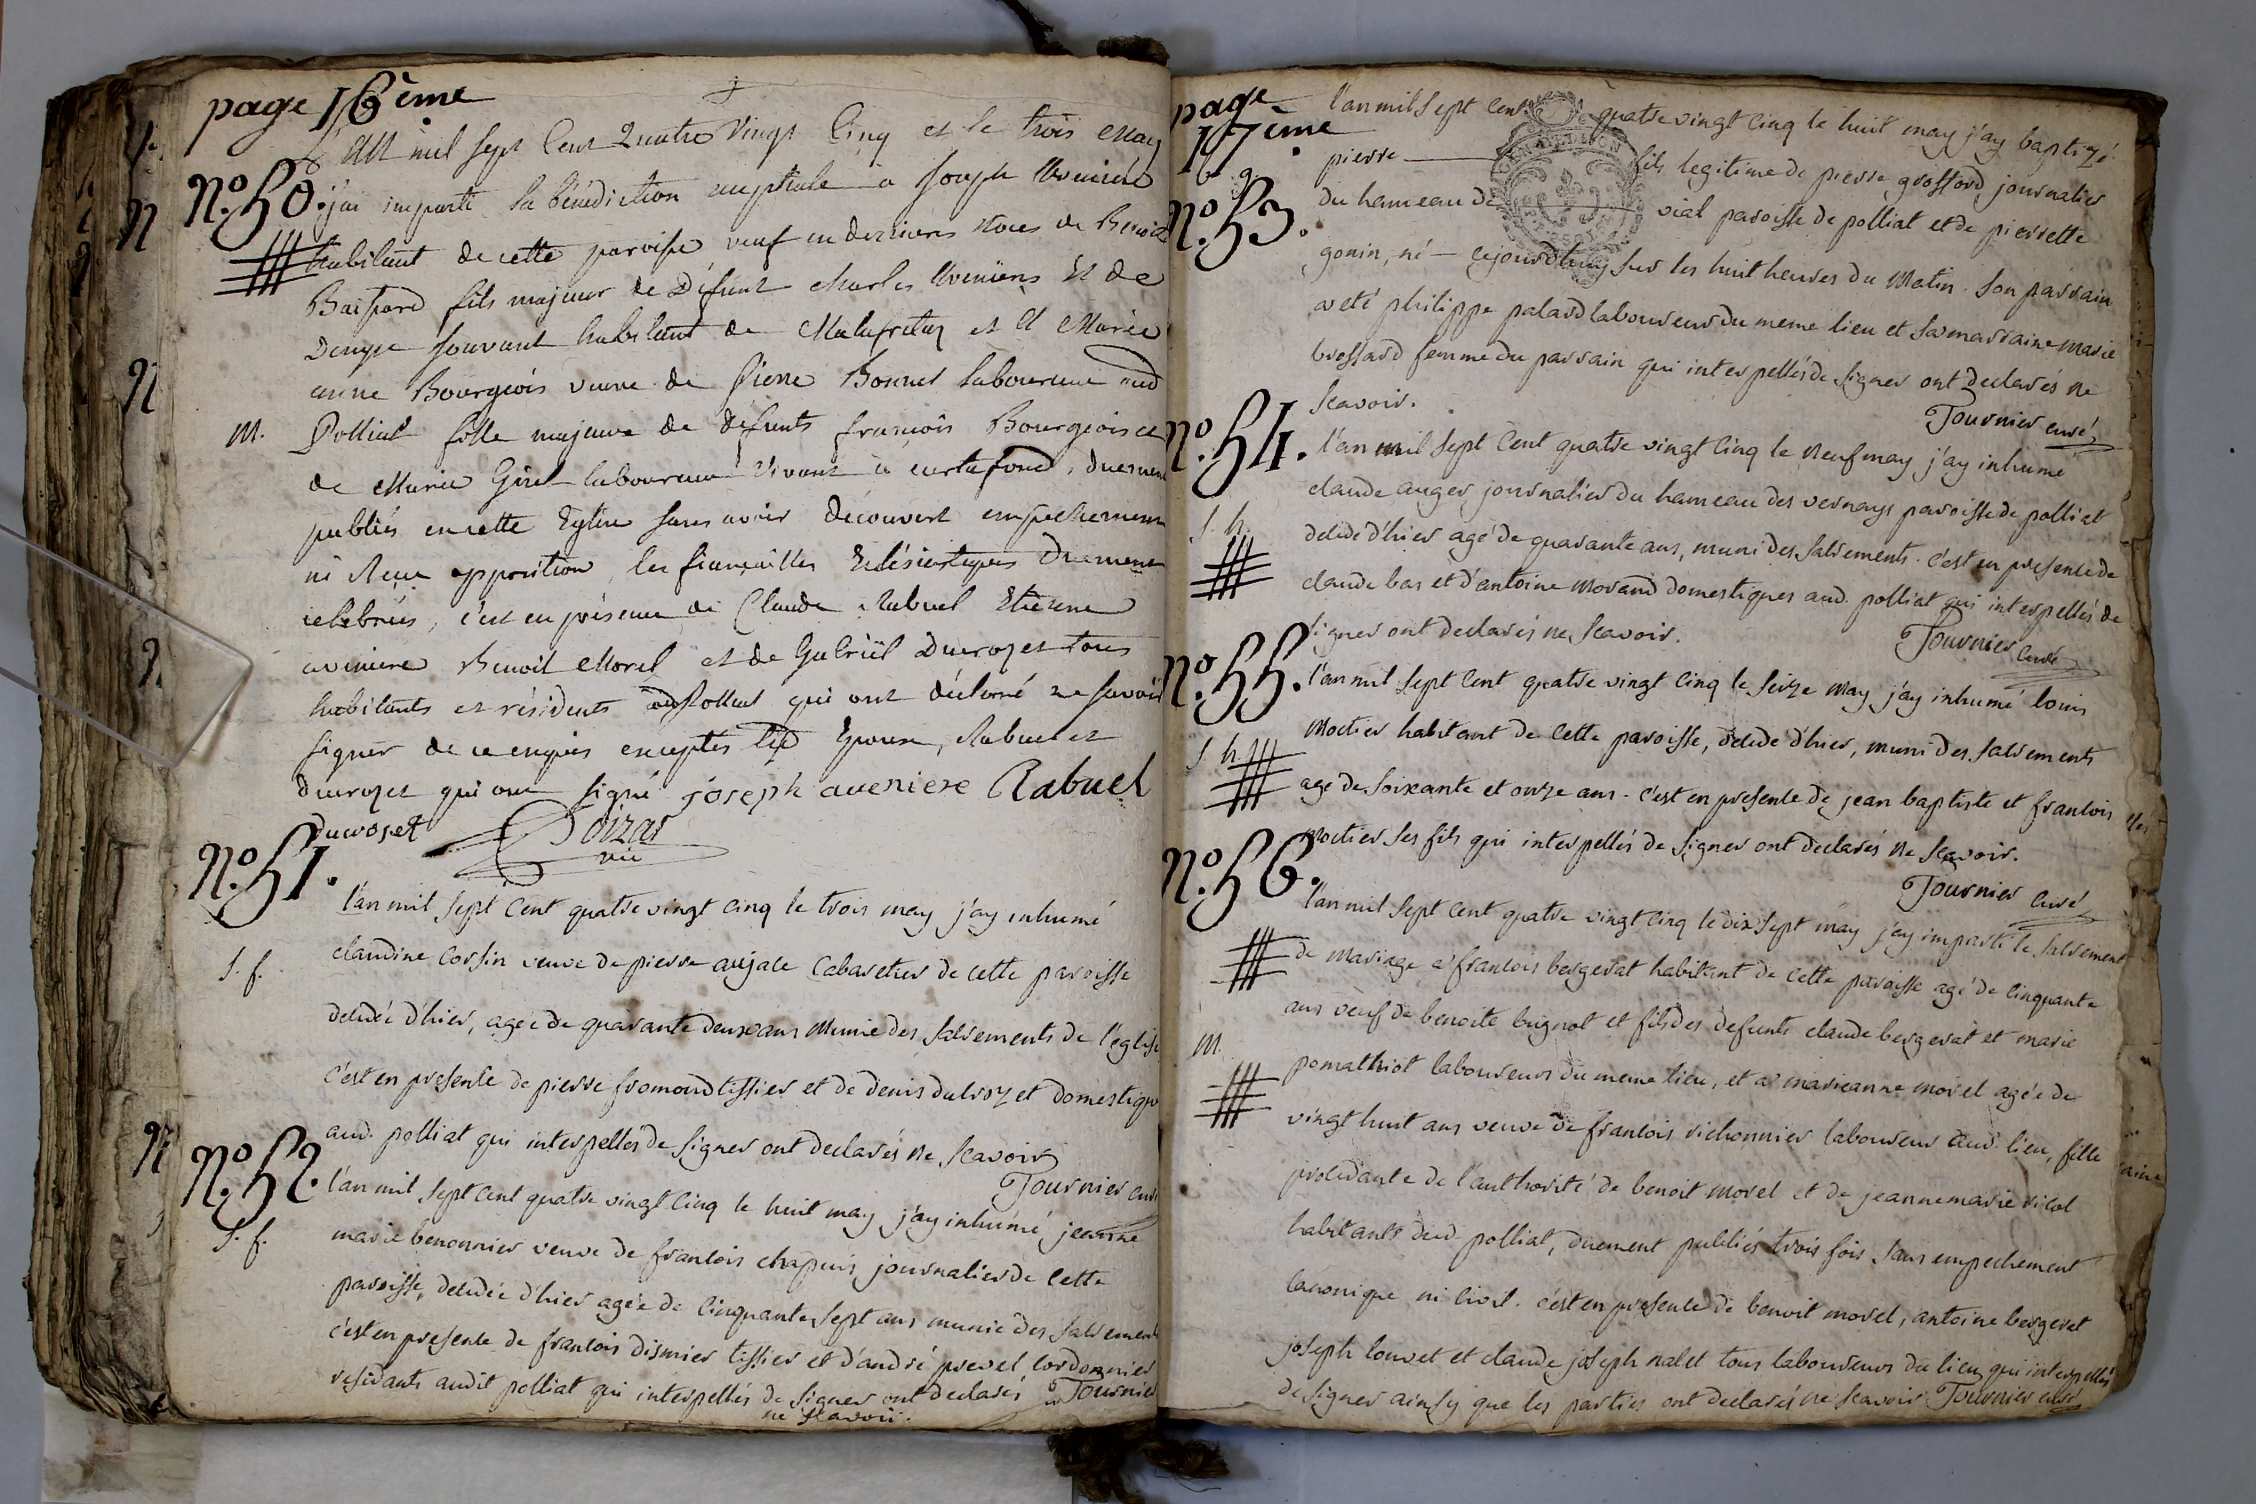 page 16ème
L'an mil sept Cent Quatre Vingt Cinq et le trois May
N.º 50. j'ai imparti la bénédiction nuptiale a Joseph Aveniere
habitant de cette paroisse veuf en dernieres noces de Benoite
fils majeur de Défunt Charles Aveniere Et de
Denyse Souvant habitant de Malafretaz et a Marie
anne Bourgeois veuve de Pierre Bonnet laboureur aud
M. Polliat fille majeure de defunts francois Bourgeois et
de Marie Girel laboureur vivant à curtafond, duement
publiés en cette Eglise sans avoir découvert empechement
ni Reçu opposition, les fiançailles Eclésiastiques Duement
celebrées, c'est en présence de Claude Rabuel Etienne
aveniere Benoit Morel et de Gabriel Ducrozet tous
habitants et résidents aud Polliat qui ont déclaré ne savoir
signer de ce enquis exceptés l'Epoux, Rabuel et
ducrozet qui ont signé joseph aveniere Rabuel
ducroset
N.º 51.
l'an mil sept Cent quatre vingt cinq le trois may j'ay inhumé
S. f. claudine Corsin veuve de pierre aujace Cabaretier de cette paroisse
decedée d'hier, agée de quarante deux ans Munie des sacrements de l'église
c'est en presence de pierre fromond tissier et de denis ducrozet domestique
aud. polliat qui interpellés de signer ont declarés ne scavoir
Tournier curé
N.º 52. l'an mil sept cent quatre vingt cinq le huit may j'ay inhumé jeanne
S. f. marie benonnier veuve de francois chapuis journalier de cette
paroisse, decedée d'hier agée de cinquante sept ans munie des sacrements
c'est en presence de francois dismier tissier et d'andré prevel cordonnier
residants audit polliat qui interpellés de signer ont declarés Tournier
ne scavoir.
page
17ème
l'an mil sept cent quatre vingt cinq le huit may j'ay baptizé
b. g. pierre fils legitime de pierre grossord journalier
N.º 53. du hameau de vial paroisse de polliat et de pierrette
gonin, né cejourdhuy sur les huit heures du Matin. Son parrain
a eté philippe palard laboureur du meme lieu et sa marraine marie
brossard femme du parrain qui interpellés de signer ont declarés ne
scavoir. Tournier curé
N.º 54. l'an mil sept Cent quatre vingt cinq le Neuf may j'ay inhumé
claude auger journalier du hameau des vernays paroisse de polliat
S. h. decedé d'hier agé de quarante ans, muni des sacrements. c'est en presence de
claude bas et d'antoine Morand domestiques aud. polliat qui interpellés de
signer ont declarés ne scavoir. Tournier curé
N.º 55. l'an mil sept Cent quatre vingt cinq le seize May j'ay inhumé louis
Moctier habitant de cette paroisse, decedé d'hier, muni des sacrements
S. h. agé de soixante et onze ans. c'est en presence de jean baptiste et francois
Moctier ses fils qui interpellés de signer ont declarés ne scavoir.
Tournier curé
N.º 56. l'an mil sept cent quatre vingt cinq le dix sept may j'ay imparti le sacrement
de Mariage a francois bergerat habitant de cette paroisse agé de cinquante
ans veuf de benoite bugnot et fils des defunts claude bergerat et marie
M. pomathiot laboureurs du meme lieu, et a marieanne morel agée de
vingt huit ans veuve de francois richonnier laboureur aud. lieu, fille
procedante de l'authorité de benoit morel et de jeannemarie vicol
habitants dud. polliat, duement publiés trois fois sans empechement
canonique ni civil. c'est en presence de benoit morel, antoine bergerat
joseph louvet et claude joseph nalet tous laboureurs du lieu qui interpellés
de signer ainsy que les parties ont declarés ne scavoir Tournier curé